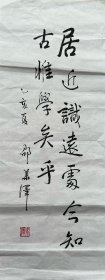 居近識遠處今知
古惟學矣乎
乙亥夏 邵華澤